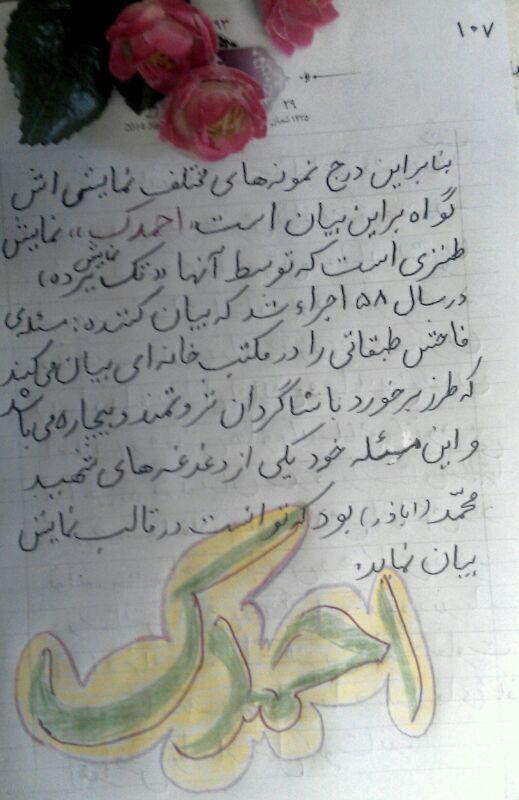 ۱۰۷
۹۳
۲۹
۱۴۳۵ شعبان
2014
بنابراین درج نمونه‌های مختلف نمایشی اش
گواه براین بیان است «احمدک» نمایش
طنزی است که توسط آنها «نمایش تک پرده»
در سال ۵۸ اجراء شد که بیان کننده: مسئله‌ی
فاحش طبقاتی را در مکتب خانه‌ای بیان می‌کند
که طرز برخورد با شاگردان ثروتمند و بیچاره می‌باشد
و این مسئله خود یکی از دغدغه‌های شهید
محمّد (اباذر) بود که توانست در قالب نمایش
بیان نماید.
احمدک